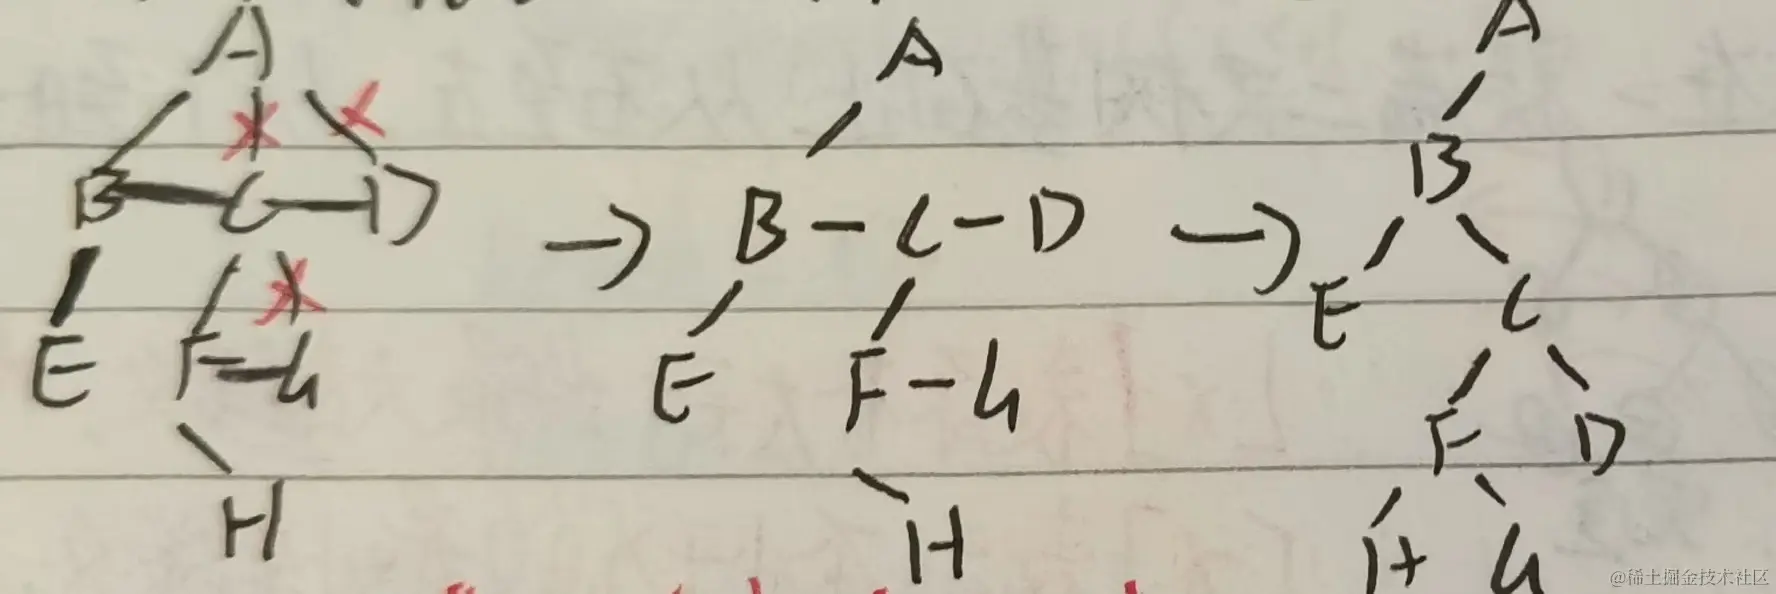 A A A
B
B C D → B - C - D →
E C
E F G E F - G
F D
H H
H G
@稀土掘金技术社区